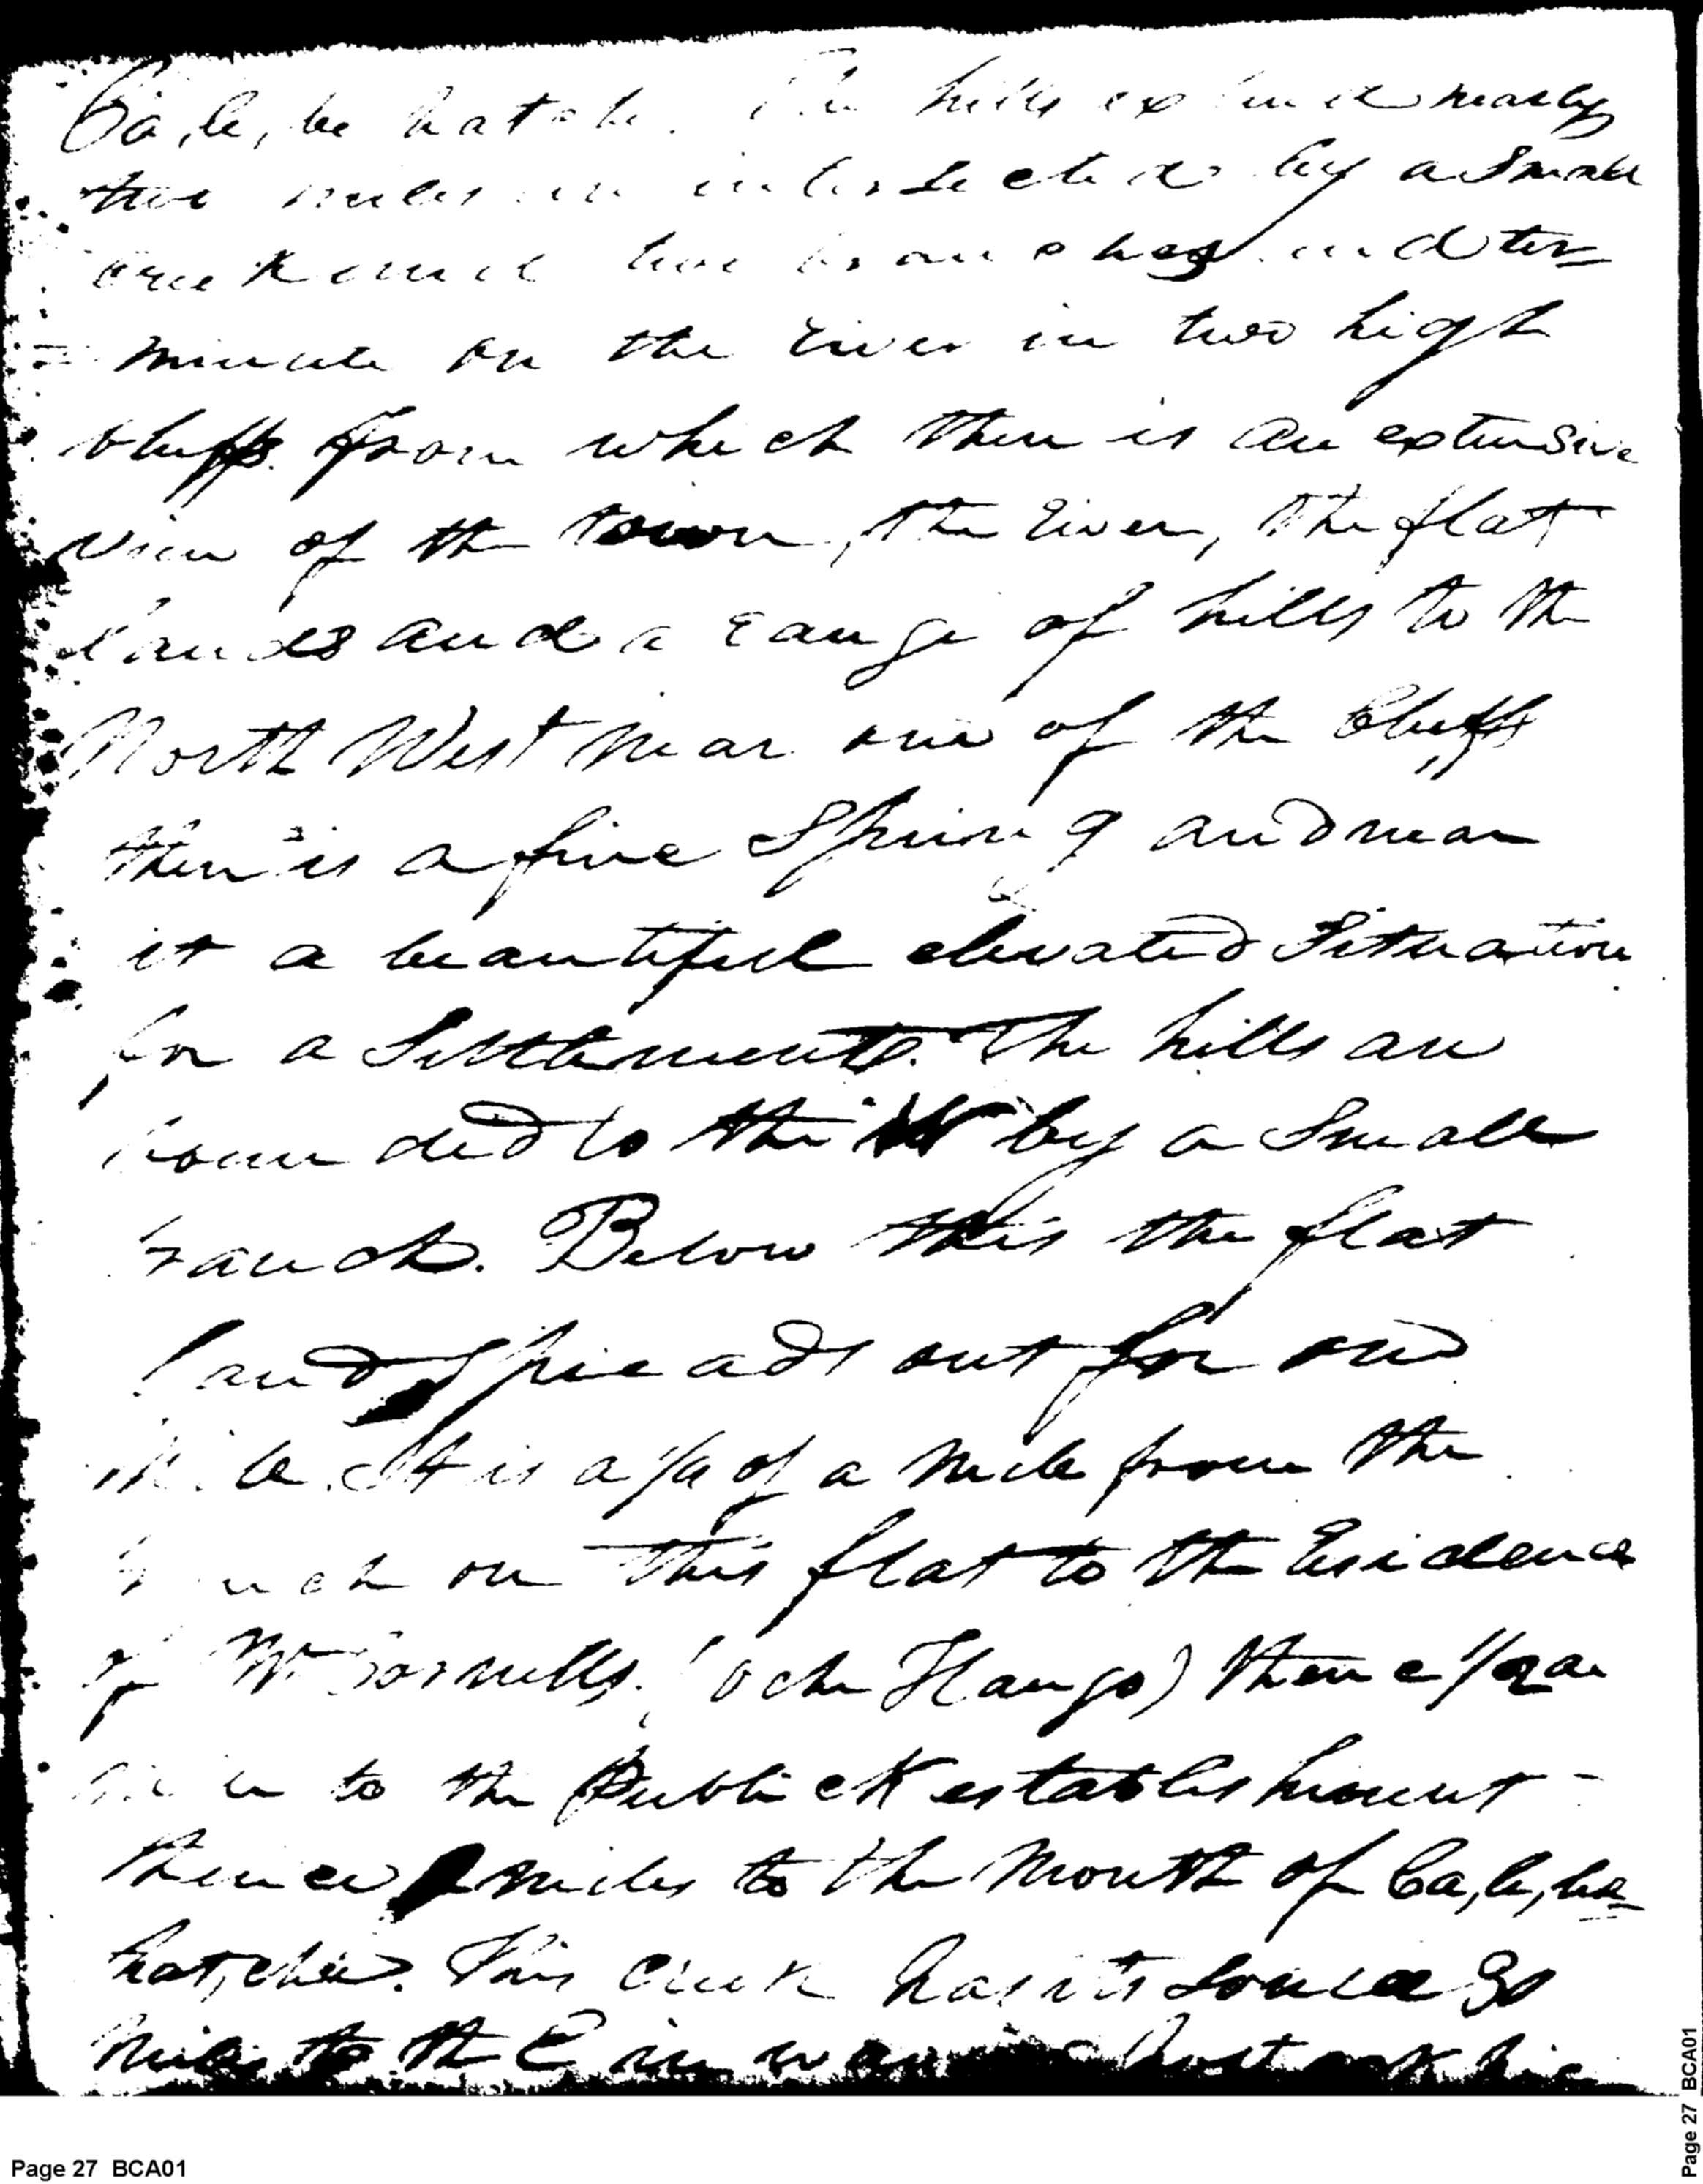 Ca,le,be hatche. The hills extend nearly
two miles are intersected by a small
creek and two branches and ter=
=minate on the river in two high
bluffs from which there is an extensive
view of the town, the river, the flat
lands and a range of hills to the
North West near one of the bluffs
there is a fine Spring and near
it a beautiful elevated Situation
for a Settlement. The hills are
bounded to the by a Small
branch. Below this the flat
land Spreads out for one
mile. It is a 1/4 of a mile from the
branch on this flat to the residence
of Mr Cornells. (oche Haujo) thence 1/2 a
mile to the Publick establishment -
thence miles to the mouth of Ca,le,be=
hat,chee. This creek has its source 30
miles to the E in
Page 27 BCA01
Page 27 BCA01